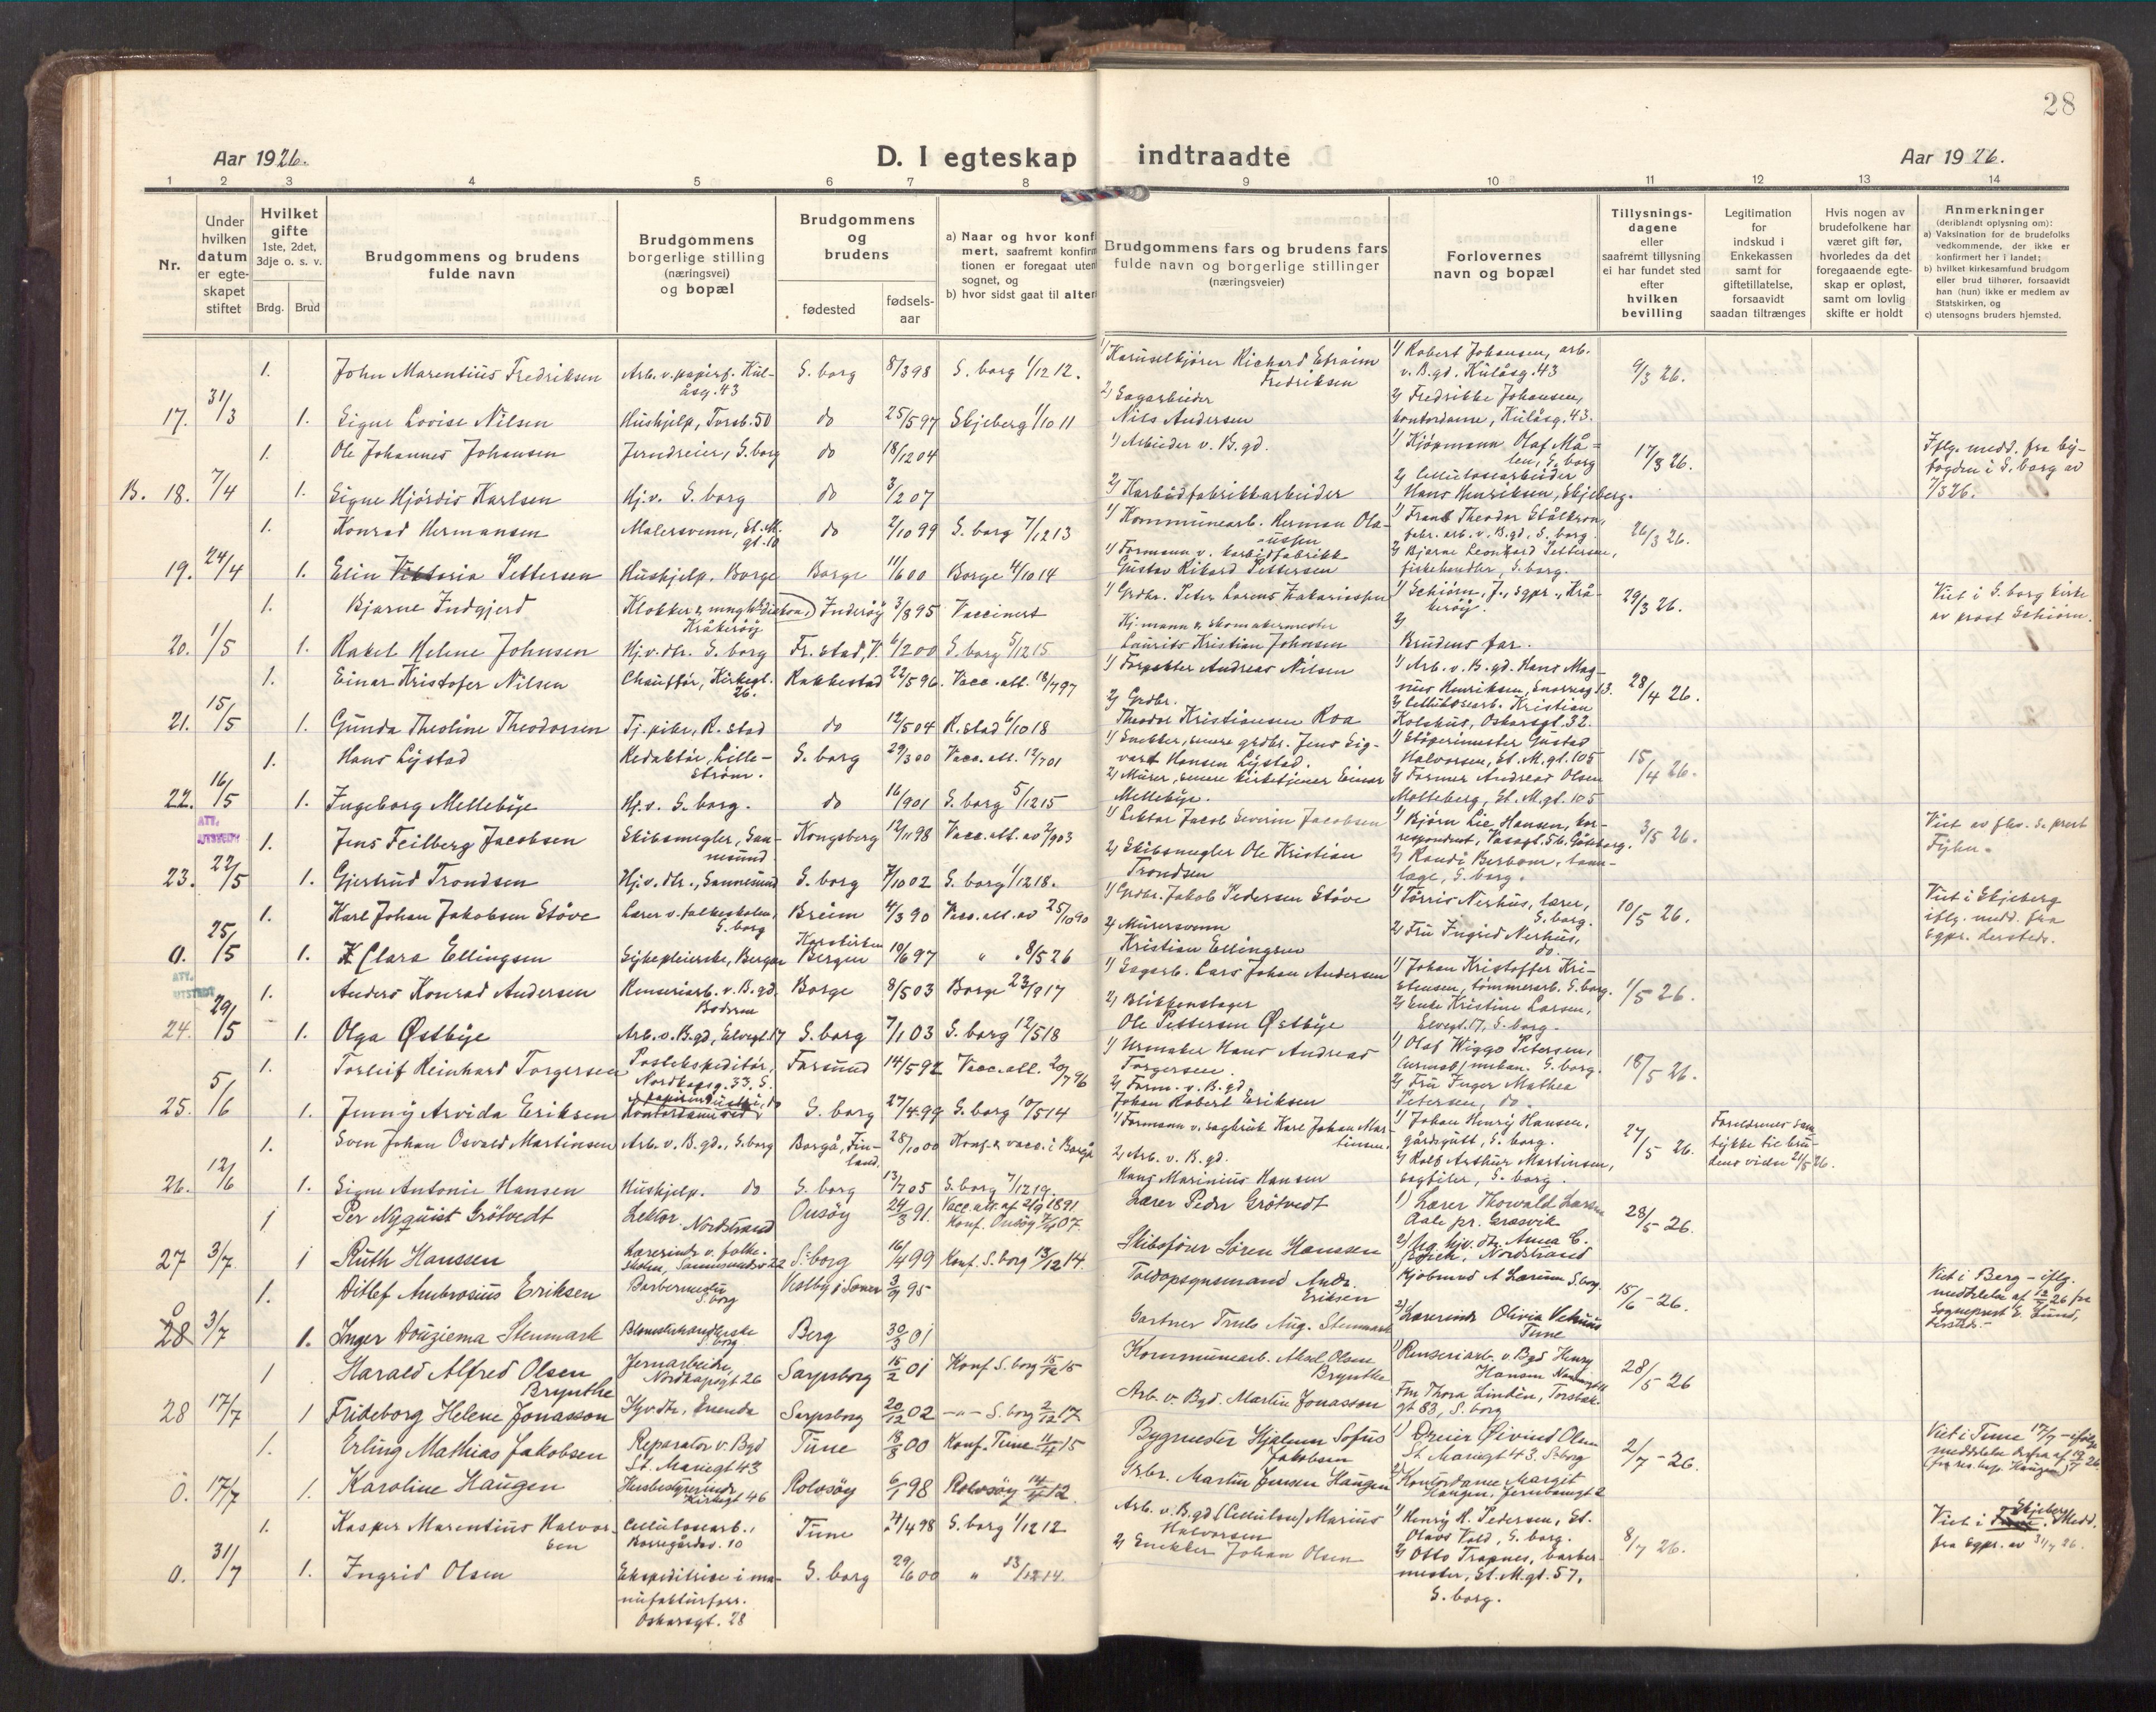 28
Aar 1926.
D. I egteskap indtraadte
Aar 1926.
1 2 3 4 5 6 7 8 9 10 11 12 13 14
Nr.
Under hvilken datum er egteskapet stiftet
Hvilket gifte 1ste, 2det, 3dje o. s. v.
Brdg. Brud
Brudgommens og brudens fulde navn
Brudgommens borgerlige stilling (næringsvei) og bopæl
Brudgommens og brudens
fødested
fødsels-aar
a) Naar og hvor konfi
mert, saafremt konfirm
tionen er foregaat uten
sognet, og
b) hvor sidst gaat til altern
Brudgommens fars og brudens fars fulde navn og borgerlige stillinger (næringsveier)
Forlovernes navn og bopæl
Tillysnings-dagene eller saafremt tillysning ei har fundet sted efter hvilken bevilling
Legitimation for indskud i Enkekassen samt for giftetillatelse, forsaavidt saadan tiltrænges
Hvis nogen av brudefolkene har været gift før, hvorledes da det foregaaende egte-skap er opløst, samt om lovlig skifte er holdt
Anmerkninger
(deriblandt oplysning om):
a) Vaksination for de brudefolks vedkommende, der ikke er konfirmert her i landet;
b) hvilket kirkesamfund brudgom eller brud tilhører, forsaavidt han (hun) ikke er medlem av Statskirken, og
c) utensogns bruders hjemsted.
1. John Marentius Fredriksen Arb. v. papirf. Kul-åsg. 43 S. borg 8/3 98 S. borg 1/12 12. 1) Karuselkjører Richard Efraim Fredriksen 1) Robert Johansen, arb. v. B.gd. Kulåsg. 43 9/3 26.
17. 31/3 1. Signe Lovise Nilsen Hushjelp, Torsb. 50 do 25/5 97 Skjeberg 1/10 11 2) Sagarbeider Nils Andersen 2) Fredrikke Johansen, kontordame, Kulåsg. 43.
1. Ole Johannes Johansen Jerndreier, S. borg do 18/12 04 1) Arbeider v. B. gd. 1) Kjøpmann Olaf Må-len, S. borg 17/3 26. Iflg. medd. fra by-fogden i S. borg av 7/5 26.
B. 18. 7/4 1. Signe Hjørdis Karlsen Hj.v. S. borg do 3/2 07 2) Karbidfabrikkarbeider 2) Cellulosearbeider Hans Henriksen, Skjeberg.
1. Konrad Hermansen Malersvenn, St. M. gt. 10 do 2/10 99 S. borg 7/12 13 1) Kommunearb. Herman Ola-ussen 1) Frans Theodor fabr. arb. v. B. gd., S. borg. 26/3 26.
19. 24/4 1. Elin Viktoria Pettersen Hushjelp, Borge Borge 11/6 00 Borge 4/10 14 1) Formann v. karbidfabrikk Gustav Rikard Pettersen 2) Bjarne Leonhard Pettersen, S. borg.
1. Bjarne Indgjerd Klokker & Kråkerøy Inderøy 3/8 95 Vaccinert 1) Grdbr. Peter Lorens Zakariassen 1) Schiørn, J., sgpr., Krå-kerøy. 29/3 26. Viet i S. borg kirke av prost Schiørn.
20. 1/5 1. Rakel Helene Johnsen Hj.v. dtr. S. borg Fr. stad, V. 6/2 00 S. borg 5/12 15 Kj.mann & skomakermester Laurits Kristian Johnsen 2) Brudens far.
1. Einar Kristofer Nilsen Chauffør, Kirkegt. 26. Rakkestad 22/5 96. Vacc. att. 18/7 97 1) Forpakter Andreas Nilsen 1) Arb. v. B. gd. Hans Mag-nus Henriksen, 13. 28/4 26.
21. 15/5 1. Gunda Theoline Theodorsen Tj. pike, R. stad do 12/5 04 R. stad 6/10 18 2) Grdbr. Theodor Kristiansen Roa 2) Cellulosearb. Kristian Kolshus, Oskarsgt. 32.
1. Hans Lystad Redaktør, Lille-strøm. S. borg 29/3 00 Vacc. att. 12/7 01 1) Snekker, senere grdbr. Jens Sig-vart Hansen Lystad. 1) Støperimester Gustad Halvorsen, St. M. gt. 105 15/4 26.
22. 16/5 1. Ingeborg Mellebye Hj.v. S. borg. do 16/9 01 S. borg 5/12 15 2) Murer, senere kirketjener Einar Mellebye. 2) Former Andreas Olsen Molteberg, St. M. gt. 105
ATT. UTSTEDT
1. Jens Feilberg Jacobsen Skibsmegler, San-nesund Kongsberg 12/11 98 Vacc. att. av 2/9 03 1) Lektor Jacob Severin Jacobsen 1) Bjørn Lie Hansen, kor-respondent, Vasagt. 5b. Göteborg. 3/5 26. Viet av fhv. s. prest Fyhn.
23. 22/5 1. Gjertrud Trondsen Hj.v. dtr., Sannesund S. borg 7/10 02 S. borg 1/12 18. 2) Skibsmegler Ole Kristian Trondsen 2) Randi Berbom, tann-læge, S. borg.
1. Karl Johan Jakobsen Støve Lærer v. folkeskolen, S. borg Breim 4/3 90 Vacc. att. av 25/10 90 1) Grdbr. Jakob Pedersen Støve 1) Tørris Nerhus, lærer, S. borg. 10/5 26. Viet i Skjeberg iflg. medd. fra sgpr. dersteds.
0. 25/5 1. Clara Ellingsen Sykepleierske, Bergen Korskirken Bergen 19/6 97 " 8/5 26 2) Murersvenn Kristian Ellingsen 2) Fru Ingrid Nerhus, do.
ATT. UTSTEDT
1. Anders Konrad Andersen Renseriarb. v. B. gd. Borge 8/5 03 Borge 23/9 17 1) Sagarb. Lars Johan Andersen 1) Johan Kristoffer Kri-stensen, tømmerarb. S. borg. 1/5 26.
24. 29/5 1. Olga Østbye Arb. v. B. gd, Elvegt. 17 S. borg 7/1 03 S. borg 12/5 18 2) Blikkenslager Ole Pettersen Østbye 2) Enke Kristine Larsen, Elvegt. 17, S. borg.
1. Torleif Reinhard Torgersen Postekspeditør, Nordkapsg. 33. S. Farsund 14/5 92 Vacc. att. 20/7 96 1) Urmaker Hans Andreas Torgersen. 1) Olaf Wiggo Petersen, S. borg. 18/5 26.
25. 5/6 1. Jenny Arvida Eriksen S. borg 27/4 99 S. borg 10/5 14 2) Form. v. B. gd. Johan Robert Eriksen 2) Fru Inger Mathea Petersen, do.
1. Sven Johan Osvald Martinsen Arb. v. B. gd., S. borg Borgå, Fin-land. 28/10 00 Konf. & vacc. i Borgå 1) Formann v. sagbruk Karl Johan Mar-tinsen. 1) Johan Henry Hansen, gårdsgutt, S. borg. 27/5 26. Foreldrenes sam-tykke til bru-dens vielse 21/5 26.
26. 12/6 1. Signe Antonie Hansen Hushjelp. do S. borg 13/7 05 S. borg 7/12 19. 2) Arb. v. B. gd. Hans Marinius Hansen 2) Rolf Arthur Martinsen, sagfiler, S. borg.
1 Per Nyquist Grötvedt Lektor. Nordstrand Onsöy 24/3 91. Vacc. att. af 2/9 1891 Konf. Onsöy 07. Lærer Peder Grötvedt 1) Lærer Thorvald Larsen Aale pr. Græsvik 28/5-26.
27 3/7. 1 Ruth Hanssen Lærerinde v. folke-skolen, S.borg 16/4 99 Konf. S. borg 13/12 14. Skibsfører Søren Hanssen 2) Nordstrand
1. Ditlef Ambrosius Eriksen Barbermester S. borg 3/9 95 Toldopsynsmand Andr. Eriksen Kjøbmand A Larum S. borg. 15/6-26. Viet i Berg - iflg. meddelelse af 12/7 26 fra Sogneprest E. Lund, dersteds.-
0 28 3/7 1. Inger Douziema Stenmark Blomsterhandlerske S. borg Berg 30/3 01 Gartner Truls Aug. Stenmark 2) Lærerinde Olivia Vehus Tune
1 Harald Alfred Olsen Brynthe Jernarbeider, Nordkapsgt 26 Sarpsborg 15/2 01 Konf. S. borg 15 Kommunearb. Aksel Olsen Brynthe 1) Renseriarb. v. Bgd Henry Hansen 28/5-26
28 17/7 1 Frideborg Helene Jonasson Hjv. dtr., Sarpsborg 20/12 02 -"- S. borg 2/12 17 Arb. v. Bgd. Martin Jonasson Fru Thora Lindén, Torsbak. gt 83, S. borg
1. Erling Mathias Jakobsen Reparatør v. Bgd St. Mariegt 43 Tune 18/8 00 Konf. Tune 15 Bygmester Hjalmar Sofus Jakobsen 1) Dreier Øivind Olsen St. Mariegt 43. S.borg 2/7-26. Viet i Tune 17/7-ifølge meddelelse derfra af 19/7 26
0. 17/7 1. Karoline Haugen Husbestyrerinde Kirkegt 46 Rolvsöy 6/1 98 Rolvsöy 12. Grbr. Martin Jensen Haugen 2) Kontordame Margit Haugen,
1. Kasper Marentius Halvor-sen Cellulosearb., Borregårdsv. 10 Tune 4/4 98 S. borg 1/12 12 Arb. v. B. gd (Cellulose) Marius Halvorsen 1) Henry R. Pedersen, St. Olavs Vold, S. borg. 8/7 26. Viet i Skjeberg. Medd. fra sgpr. av 31/7 26.
0. 31/7 1. Ingrid Olsen Ekspeditrise i ma-nufakturforr. Oskarsgt. 28 S. borg 29/6 00 " 13/12 14. 2) Snekker Johan Olsen 2) Otto Trapnes, barber-mester, St. M. gt. 57, S. borg.